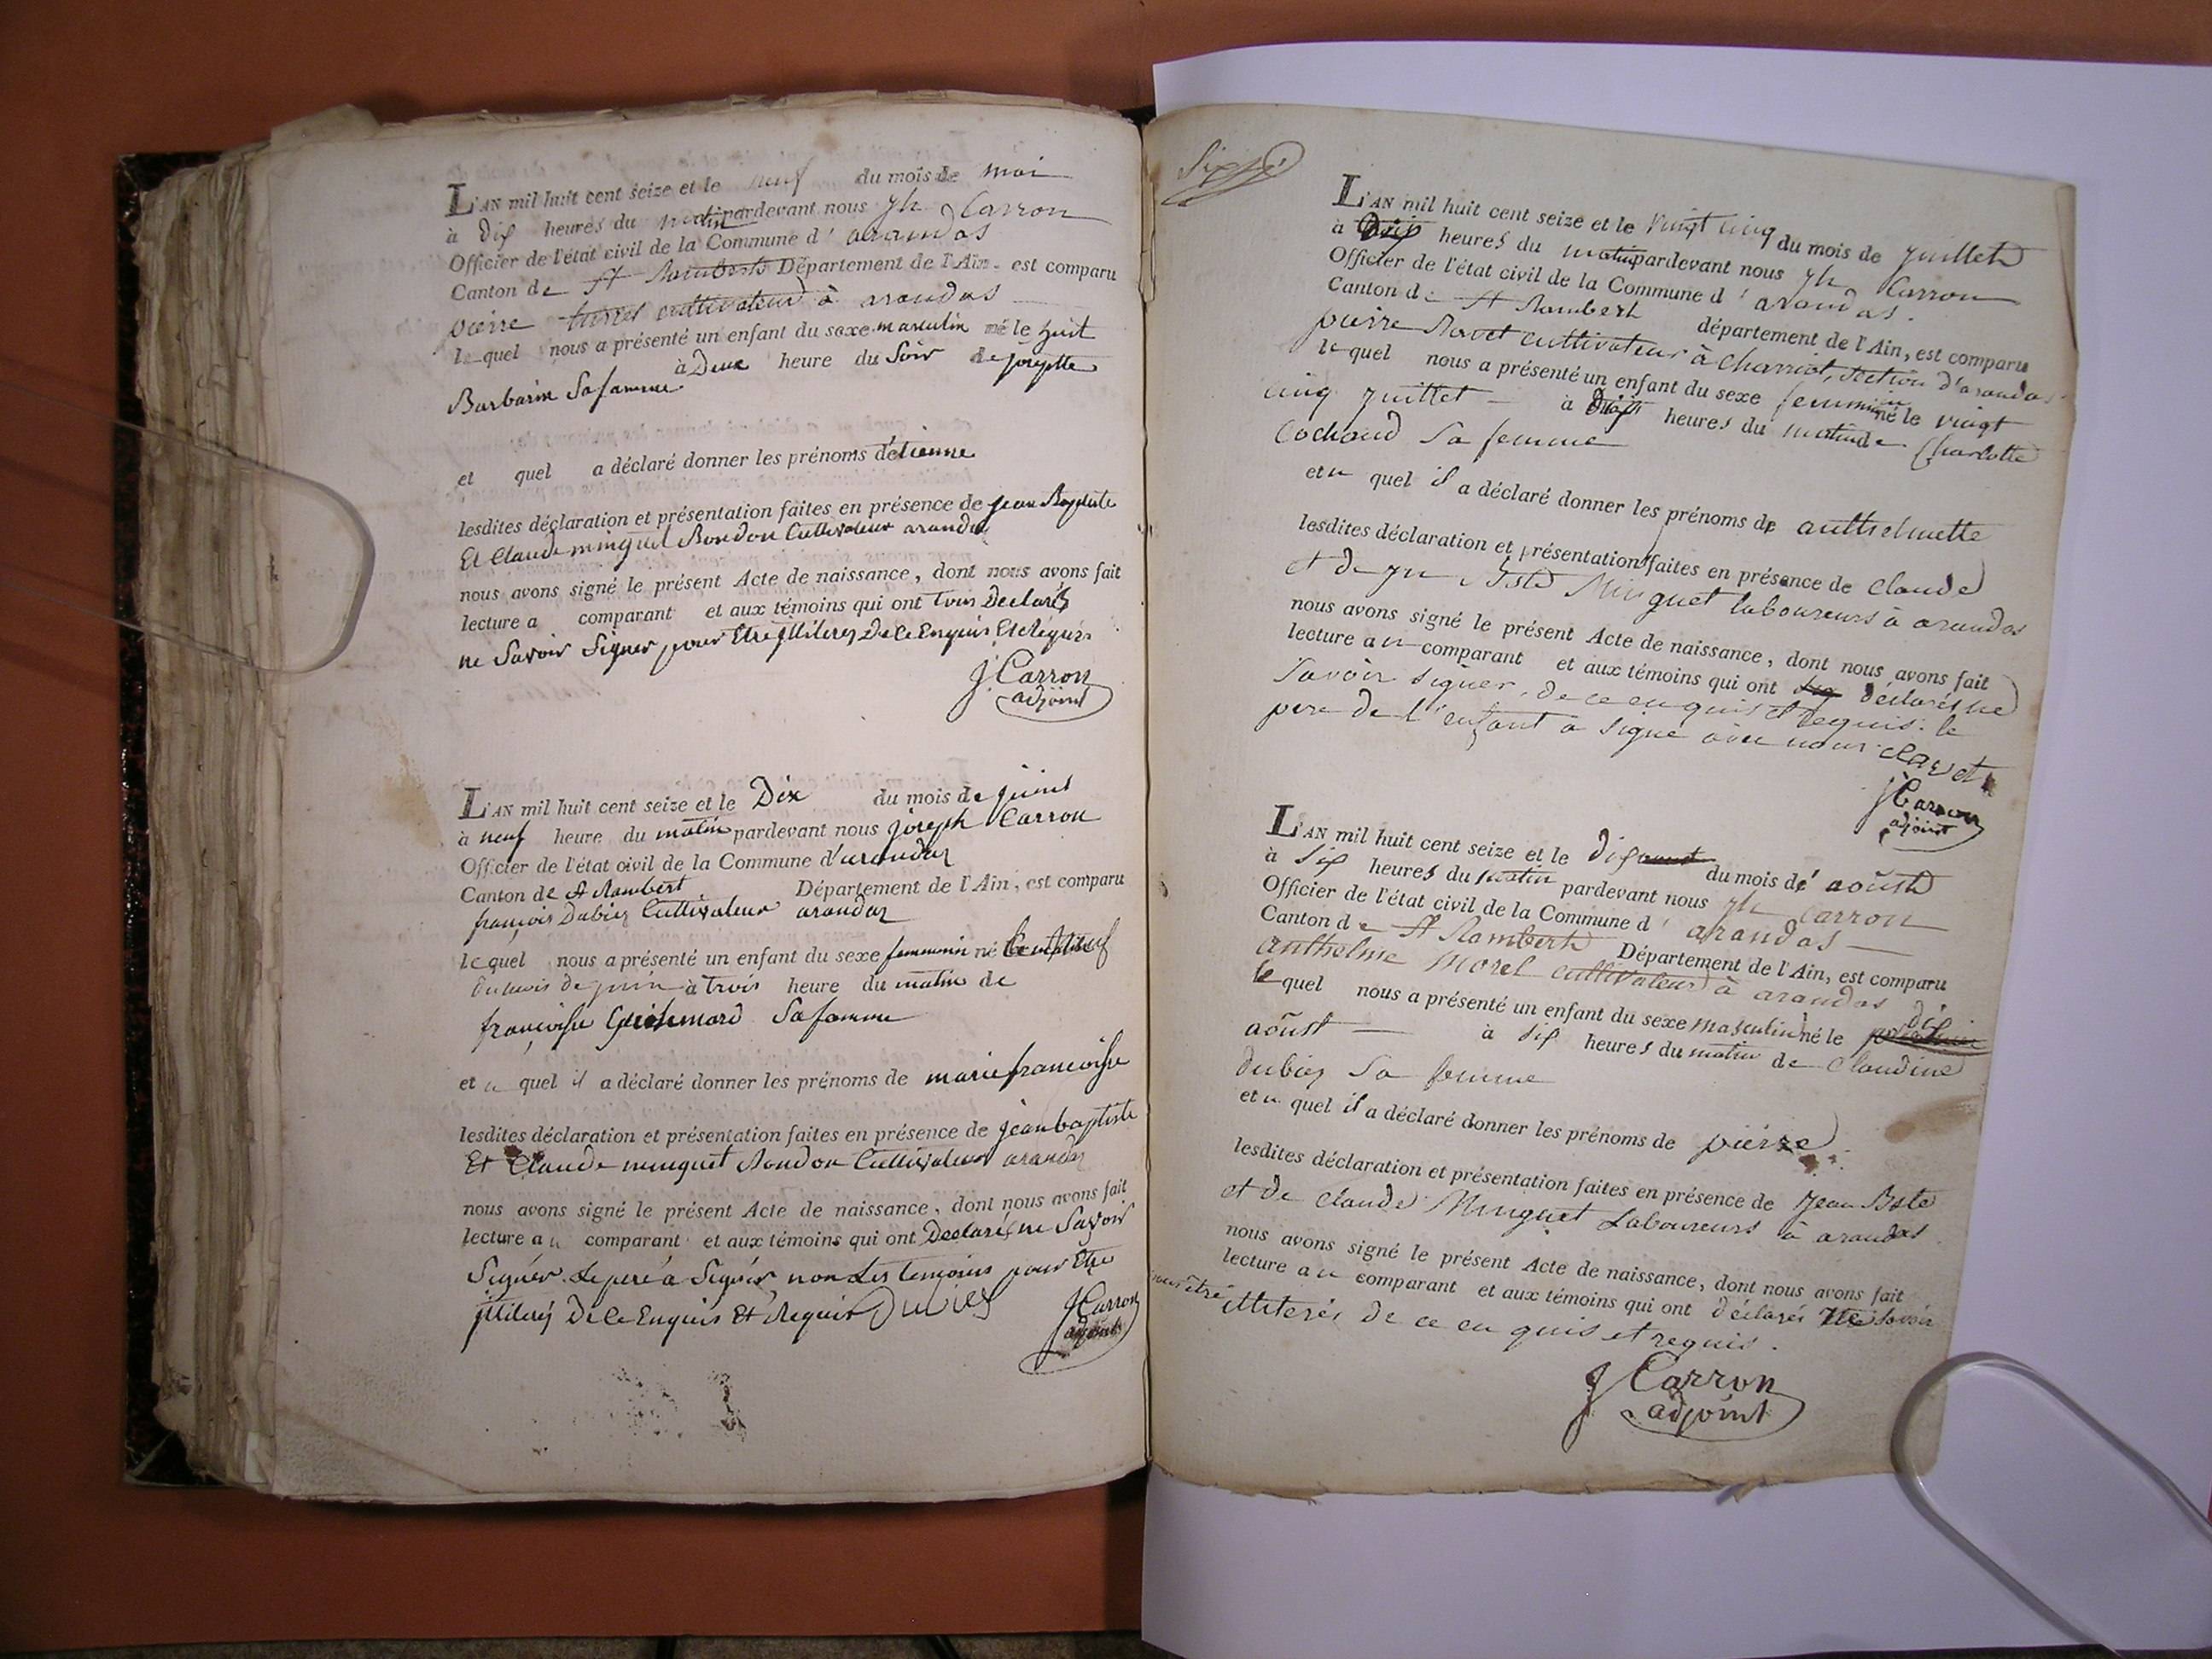 L'AN mil huit cent seize et le neuf du mois de mai
à dix heures du matin pardevant nous jh Carron
Officier de l'état civil de la Commune d'arandas
Canton de St Rambert Département de l'Ain, est comparu
pierre cultivateur à arandas
lequel nous a présenté un enfant du sexe masculin né le huit
à Deux heure du Soir de josephte
Barbarin Sa famme
et quel a déclaré donner les prénoms d'étienne
lesdites déclaration et présentation faites en présence de jean Baptiste
Et Claude minguet Rondon Cultivateur arandas
nous avons signé le présent Acte de naissance, dont nous avons fait
lecture a comparant et aux témoins qui ont tous Declarés
ne Savoir Signer pour Etre illiterés De Ce Enquis Et Requis
J. Carron
adjoint
L'AN mil huit cent seize et le Dix du mois de juint
à neuf heure du matin pardevant nous joseph Carron
Officier de l'état civil de la Commune d'arandas
Canton de St Rambert Département de l'Ain, est comparu
françois Dubiez Cultivateur arandas
lequel nous a présenté un enfant du sexe femminin né le neuf
du mois de juin à trois heure du matin de
françoisse Sa famme
et u quel il a déclaré donner les prénoms de marie francoisse
lesdites déclaration et présentation faites en présence de jean baptiste
Et Claude minguet Rondon Cultivateur arandas
nous avons signé le présent Acte de naissance, dont nous avons fait
lecture au comparant et aux témoins qui ont Declaré ne Savoir
Signér. Le peré a Signér non Les temoins pour Etre
illiterés De Ce Enquis Et Requis Dubies
J Carron
adjoint
Six
L'AN mil huit cent seize et le vingt cinq du mois de juillet
à Dix heures du matin pardevant nous jh Carron
Officier de l'état civil de la Commune d'arandas.
Canton de St Rambert département de l'Ain, est comparu
pierre Ravet cultivateur à Charriot, section d'arandas.
lequel nous a présenté un enfant du sexe feminin né le vingt
cinq juillet à heures du matin de Charlotte
Cochand Sa femme
et u quel il a déclaré donner les prénoms de anthelmette
lesdites déclaration et présentation faites en présence de Claude
et de jn Bste Minguet laboureurs à arandas
nous avons signé le présent Acte de naissance, dont nous avons fait
lecture au comparant et aux témoins qui ont déclarés ne
Savoir signer, de ce enquis et requis. le
pere de l'enfant a signé avec nous.
J Carron
adjoint
L'AN mil huit cent seize et le dix du mois de aoûst
à six heures du matin pardevant nous jh Carron
Officier de l'état civil de la Commune d'arandas
Canton de St Rambert Département de l'Ain, est comparu
anthelme Morel cultivateur à arandas
lequel nous a présenté un enfant du sexe masculin né le dix
aoûst à six heures du matin de Claudine
dubiez Sa femme
et u quel il a déclaré donner les prénoms de pierre
lesdites déclaration et présentation faites en présence de Jean Bste
et de Claude Minguet Laboureurs à arandas
nous avons signé le présent Acte de naissance, dont nous avons fait
lecture au comparant et aux témoins qui ont déclarés ne Savoir
pour être illiterés de ce enquis et requis.
J Carron
adjoint